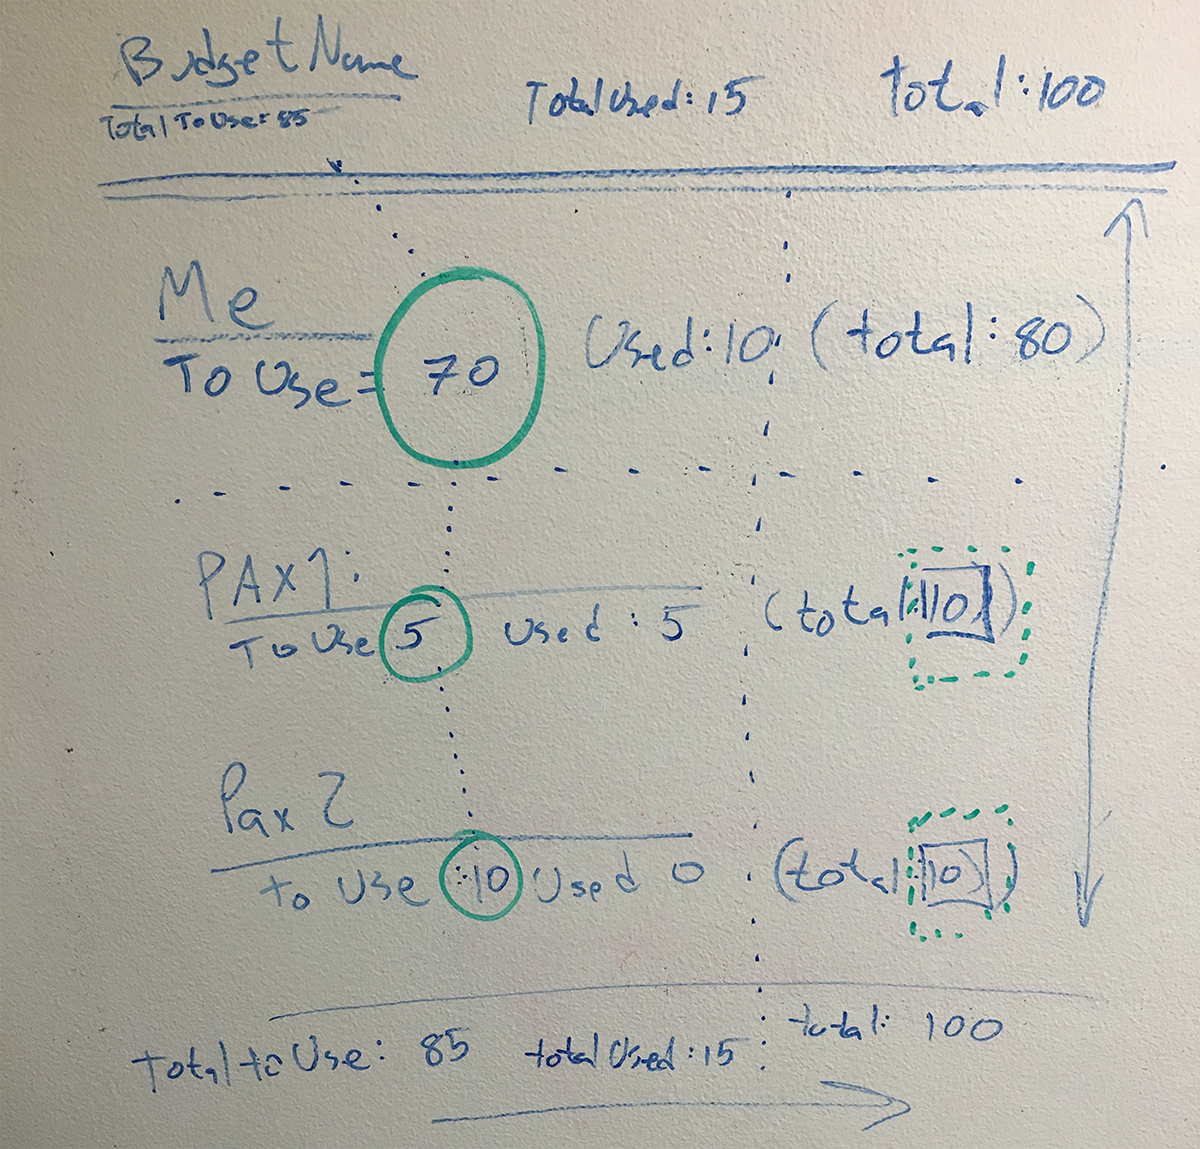 Budget Name
Total To Use: 85
Total Used: 15
total: 100
Me
To Use = 70
Used: 10
(total: 80)
PAX 1:
To Use 5
Used: 5
(total 10)
Pax 2
to Use :10
Used 0
(total 10)
Total to Use: 85
total Used: 15
total: 100